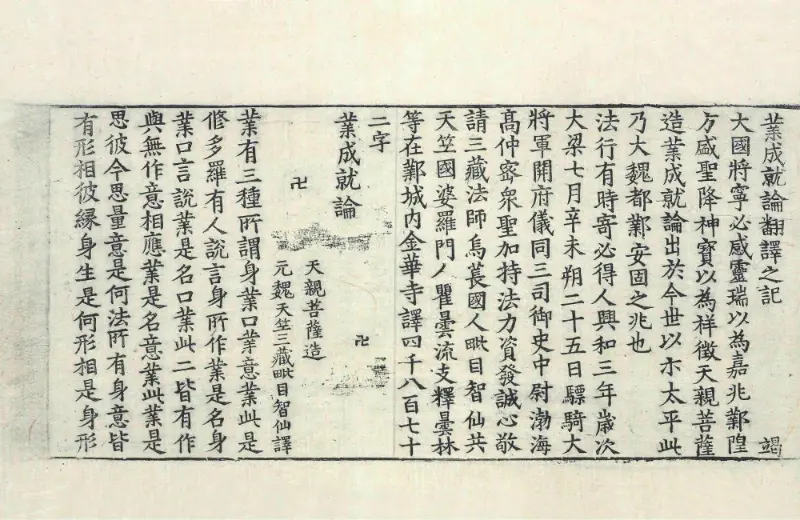 業成就論翻譯之記　竭
大國將寧必感靈瑞以為嘉兆鄴隍
方盛聖降神寶以為祥徵天親菩薩
造業成就論出於今世以示太平此
乃大魏都鄴安固之兆也
法行有時寄必得人興和三年歲次
大梁七月辛未朔二十五日驃騎大
將軍開府儀同三司御史中尉渤海
高仲密衆聖加持法力資發誠心敬
請三藏法師烏萇國人毗目智仙共
天竺國婆羅門人瞿曇流支釋曇林
等在鄴城內金華寺譯四千八百七十
二字
業成就論
卍
天親菩薩造
卍
元魏天竺三藏毗目智仙譯
業有三種所謂身業口業意業此是
修多羅有人說言身所作業是名身
業口言說業是名口業此二皆有作
與無作意相應業是名意業此業是
思彼今思量意是何法所有身意皆
有形相彼緣身生是何形相是身形